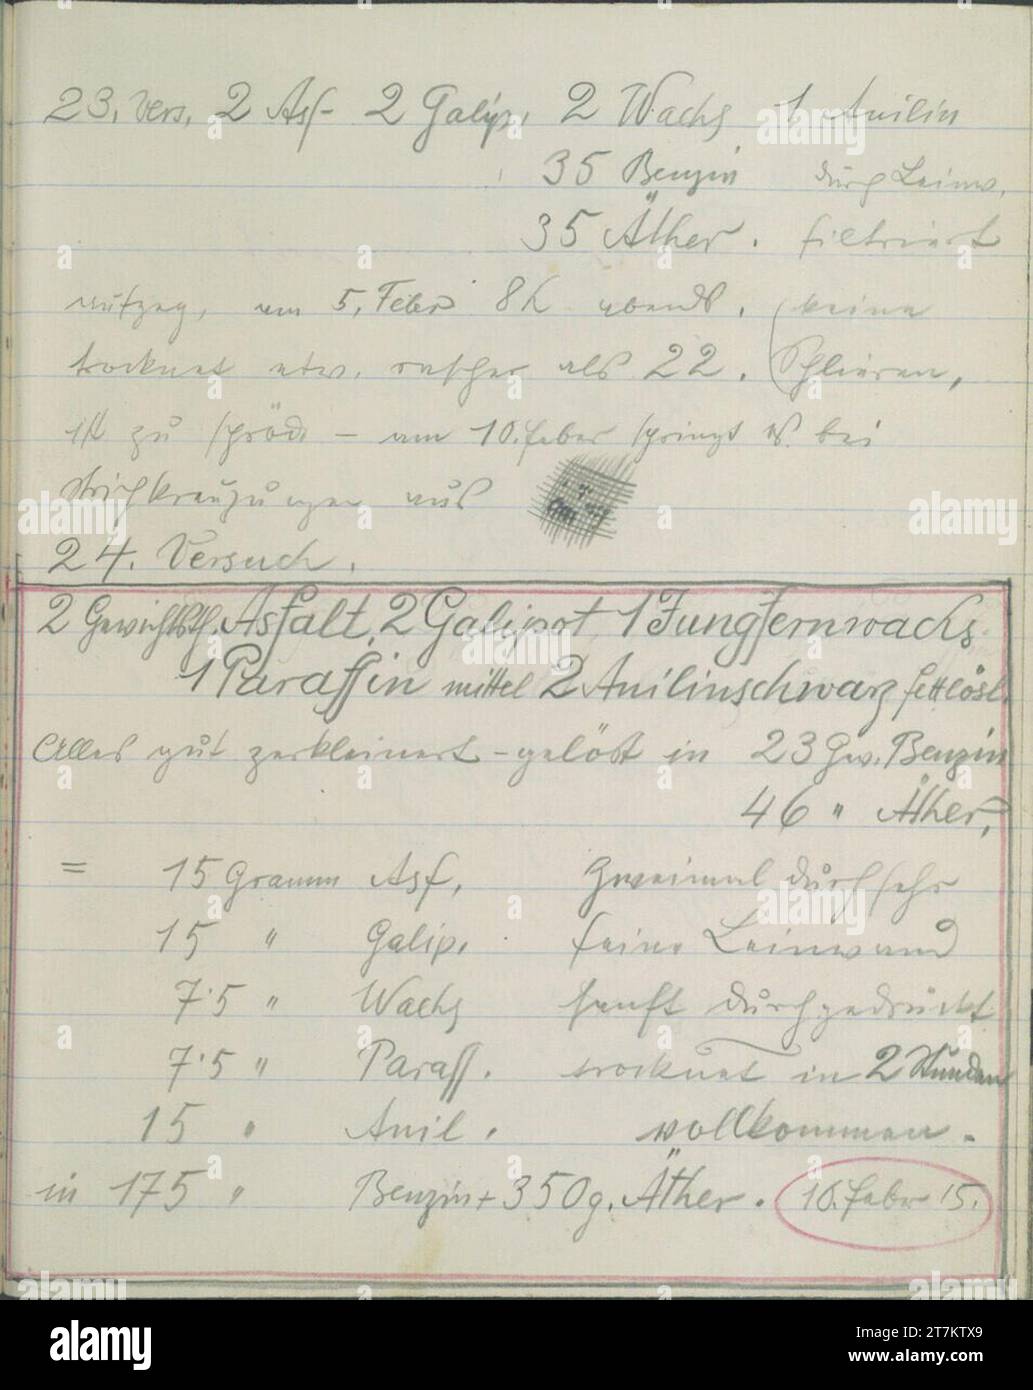 23. Vers. 2 Asf- 2 Galip. 2 Wachs 1 Anilin
35 Benzin durch Leinw.
35 Äther. filtriert
aufgetrag. am 5. Febr 8h abends. (keine
trocknet etw. rascher als 22. (Schlieren,
ist zu spröde – am 10. Feber springt es bei
Strichkreuzungen aus
24. Versuch.
2 Gewichtsth. Asfalt, 2 Galipot, 1 Jungfernwachs
1 Paraffin mittel 2 Anilinschwarz fettlösl.
Alles gut zerkleinert – gelöst in 23 Gew. Benzin
46 " Äther,
= 15 Gramm Asf, Zweimal durch sehr
15 " Galip. feine Leinwand
7·5 " Wachs sanft durchgedrückt
7·5 " Paraff. trocknet in 2 Stunden
15 " Anil. vollkommen.
in 175 " Benzin + 350 g. Äther. 10. Febr 15.
alamy
Image ID: 2T7KTX9
www.alamy.com